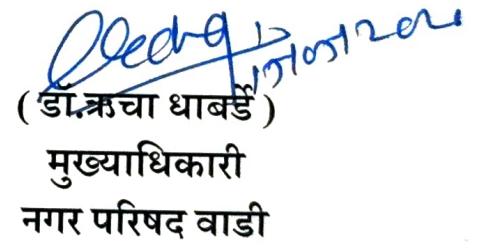 ( डॉ.ऋचा धाबर्डे )
मुख्याधिकारी
नगर परिषद वाडी